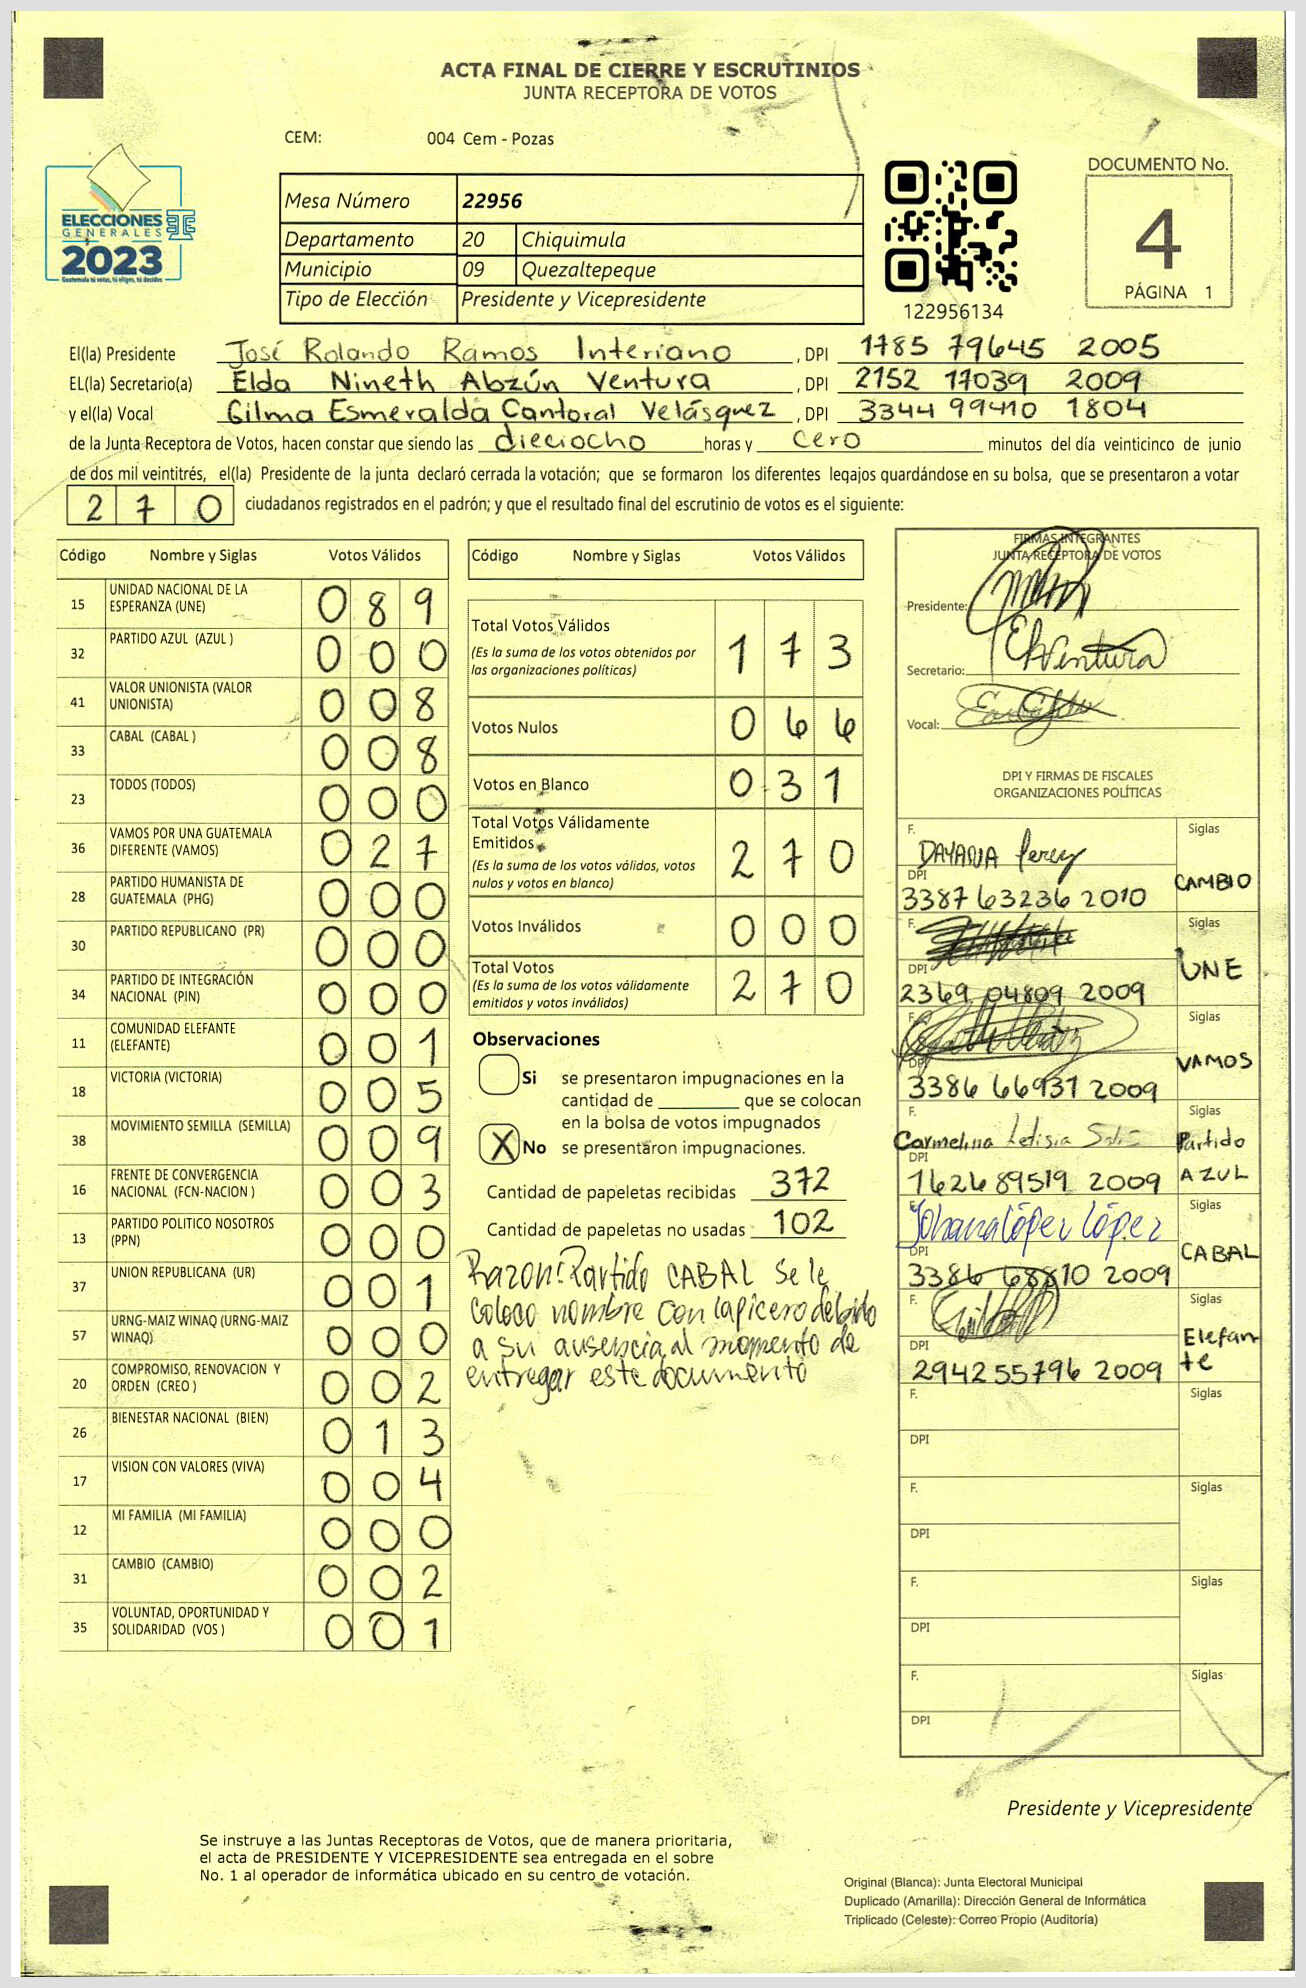 ACTA FINAL DE CIERRE Y ESCRUTINIOS
JUNTA RECEPTORA DE VOTOS
CEM: 004 Cem - Pozas
ELECCIONES
GENERALES
2023
Guatemala tú votas, tú eliges, tú decides
Mesa Número 22956
Departamento 20 Chiquimula
Municipio 09 Quezaltepeque
Tipo de Elección Presidente y Vicepresidente
122956134
DOCUMENTO No.
4
PÁGINA 1
El(la) Presidente José Rolando Ramos Interiano , DPI 1785 79645 2005
EL(la) Secretario(a) Elda Nineth Abzún Ventura , DPI 2152 17039 2009
y el(la) Vocal Gilma Esmeralda Cantoral Velásquez , DPI 3344 99410 1804
de la Junta Receptora de Votos, hacen constar que siendo las dieciocho horas y cero minutos del día veinticinco de junio
de dos mil veintitrés, el(la) Presidente de la junta declaró cerrada la votación; que se formaron los diferentes legajos guardándose en su bolsa, que se presentaron a votar
270 ciudadanos registrados en el padrón; y que el resultado final del escrutinio de votos es el siguiente:
Código Nombre y Siglas Votos Válidos
15 UNIDAD NACIONAL DE LA ESPERANZA (UNE) 089
32 PARTIDO AZUL (AZUL ) 000
41 VALOR UNIONISTA (VALOR UNIONISTA) 008
33 CABAL (CABAL ) 008
23 TODOS (TODOS) 000
36 VAMOS POR UNA GUATEMALA DIFERENTE (VAMOS) 027
28 PARTIDO HUMANISTA DE GUATEMALA (PHG) 000
30 PARTIDO REPUBLICANO (PR) 000
34 PARTIDO DE INTEGRACIÓN NACIONAL (PIN) 000
11 COMUNIDAD ELEFANTE (ELEFANTE) 001
18 VICTORIA (VICTORIA) 005
38 MOVIMIENTO SEMILLA (SEMILLA) 009
16 FRENTE DE CONVERGENCIA NACIONAL (FCN-NACION ) 003
13 PARTIDO POLITICO NOSOTROS (PPN) 000
37 UNION REPUBLICANA (UR) 001
57 URNG-MAIZ WINAQ (URNG-MAIZ WINAQ) 000
20 COMPROMISO, RENOVACION Y ORDEN (CREO ) 002
26 BIENESTAR NACIONAL (BIEN) 013
17 VISION CON VALORES (VIVA) 004
12 MI FAMILIA (MI FAMILIA) 000
31 CAMBIO (CAMBIO) 002
35 VOLUNTAD, OPORTUNIDAD Y SOLIDARIDAD (VOS ) 001
Código Nombre y Siglas Votos Válidos
Total Votos Válidos 173
(Es la suma de los votos obtenidos por
las organizaciones políticas)
Votos Nulos 066
Votos en Blanco 031
Total Votos Válidamente
Emitidos 270
(Es la suma de los votos válidos, votos
nulos y votos en blanco)
Votos Inválidos 000
Total Votos 270
(Es la suma de los votos válidamente
emitidos y votos inválidos)
Observaciones
Si se presentaron impugnaciones en la
cantidad de ________ que se colocan
en la bolsa de votos impugnados
X No se presentaron impugnaciones.
Cantidad de papeletas recibidas 372
Cantidad de papeletas no usadas 102
Razon: Partido CABAL se le
coloco nombre con lapicero debido
a su ausencia al momento de
entregar este documento
FIRMAS INTEGRANTES
JUNTA RECEPTORA DE VOTOS
Presidente:
Secretario: EAVentura
Vocal:
DPI Y FIRMAS DE FISCALES
ORGANIZACIONES POLÍTICAS
F. DAYANA Perez Siglas
DPI 3387 63236 2010 CAMBIO
F. Siglas
DPI 2369 04809 2009 UNE
F. Siglas
DPI 3386 66931 2009 VAMOS
F. Carmelina Letisia Siglas
DPI 1626 89519 2009 Partido AZUL
F. Johana López López Siglas
DPI 3386 68810 2009 CABAL
F. Siglas
DPI 2942 55796 2009 Elefante
F. Siglas
DPI
F. Siglas
DPI
F. Siglas
DPI
F. Siglas
DPI
Presidente y Vicepresidente
Se instruye a las Juntas Receptoras de Votos, que de manera prioritaria,
el acta de PRESIDENTE Y VICEPRESIDENTE sea entregada en el sobre
No. 1 al operador de informática ubicado en su centro de votación.
Original (Blanca): Junta Electoral Municipal
Duplicado (Amarilla): Dirección General de Informática
Triplicado (Celeste): Correo Propio (Auditoría)